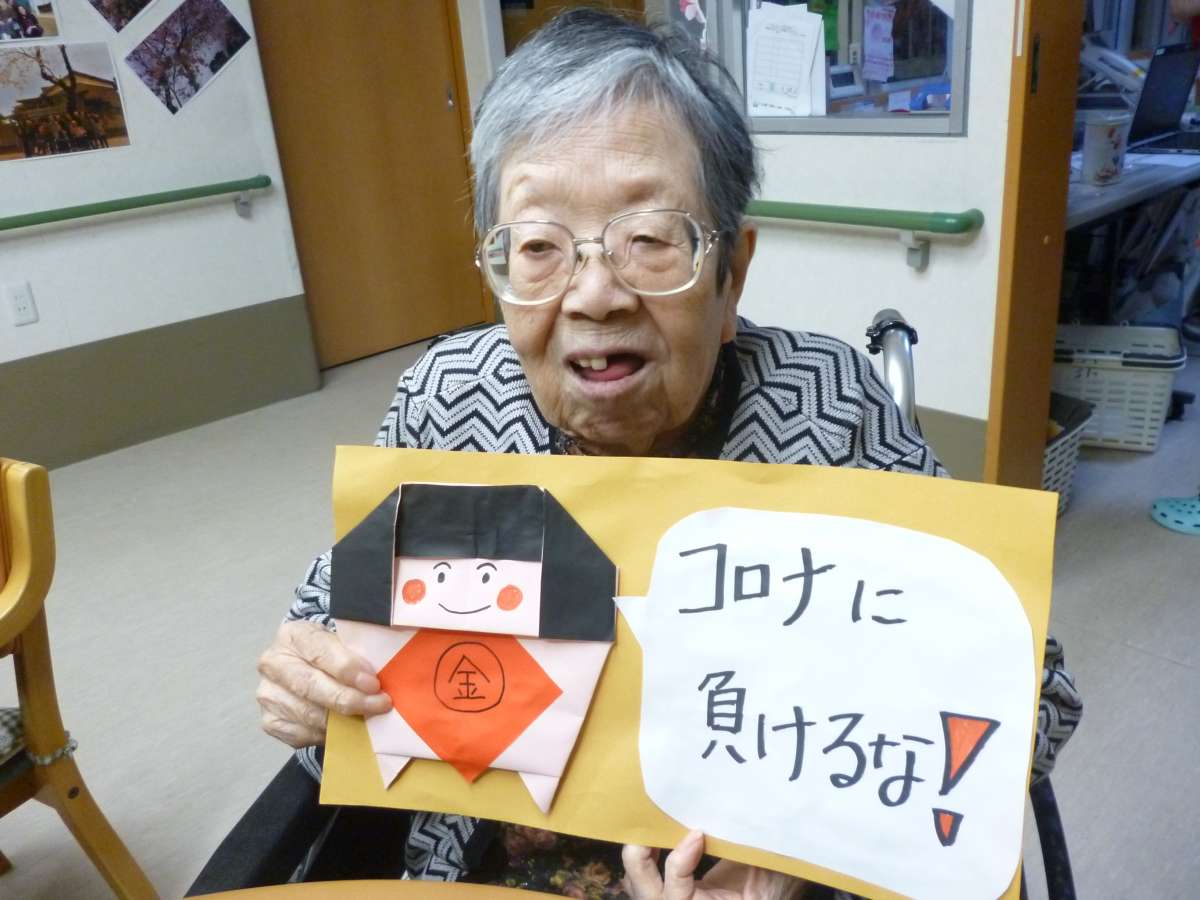 金
コロナに
負けるな!